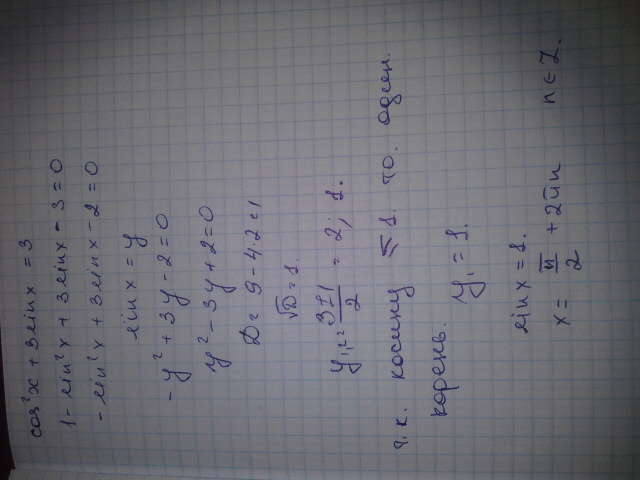 cos²x + 3sinx = 3
1 - sin²x + 3sinx - 3 = 0
- sin²x + 3sinx - 2 = 0
sinx = y
- y² + 3y - 2 = 0
y² - 3y + 2 = 0
D = 9 - 4·2 = 1
√D = 1.
y₁,₂ = (3±1)/2 = 2; 1.
т.к. косинус ≤ 1. то. один.
корень. y₁ = 1.
sinx = 1.
x = π/2 + 2πn n ∈ Z.